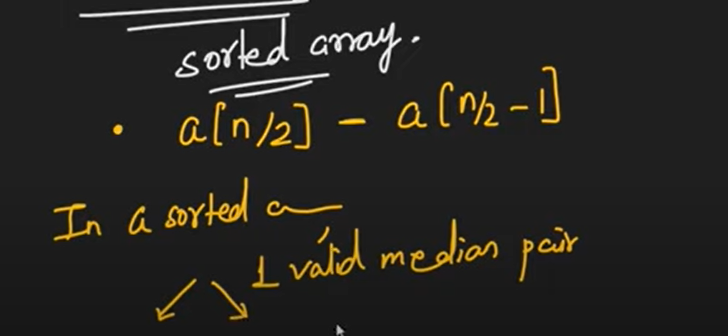 sorted array.
• a[n/2] - a[n/2 - 1]
In a sorted a
1 valid median pair